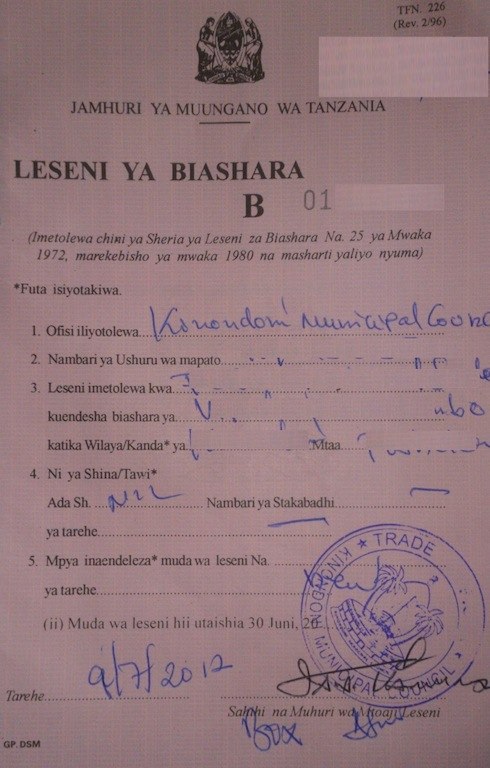 TFN. 226
(Rev. 2/96)
JAMHURI YA MUUNGANO WA TANZANIA
LESENI YA BIASHARA
B 01
(Imetolewa chini ya Sheria ya Leseni za Biashara Na. 25 ya Mwaka
1972, marekebisho ya mwaka 1980 na masharti yaliyo nyuma)
*Futa isiyotakiwa.
1. Ofisi iliyotolewa Kinondoni Municipal
2. Nambari ya Ushuru wa mapato
3. Leseni imetolewa kwa
kuendesha biashara ya
katika Wilaya/Kanda* ya Mtaa
4. Ni ya Shina/Tawi*
Ada Sh. NIL Nambari ya Stakabadhi
ya tarehe
5. Mpya inaendeleza* muda wa leseni Na.
ya tarehe
(ii) Muda wa leseni hii utaishia 30 Juni, 20
TRADE
KINONDONI MUNICIPAL COUNCIL
Tarehe 9/7/2012
Sahihi na Muhuri wa Mtoaji Leseni
GP. DSM